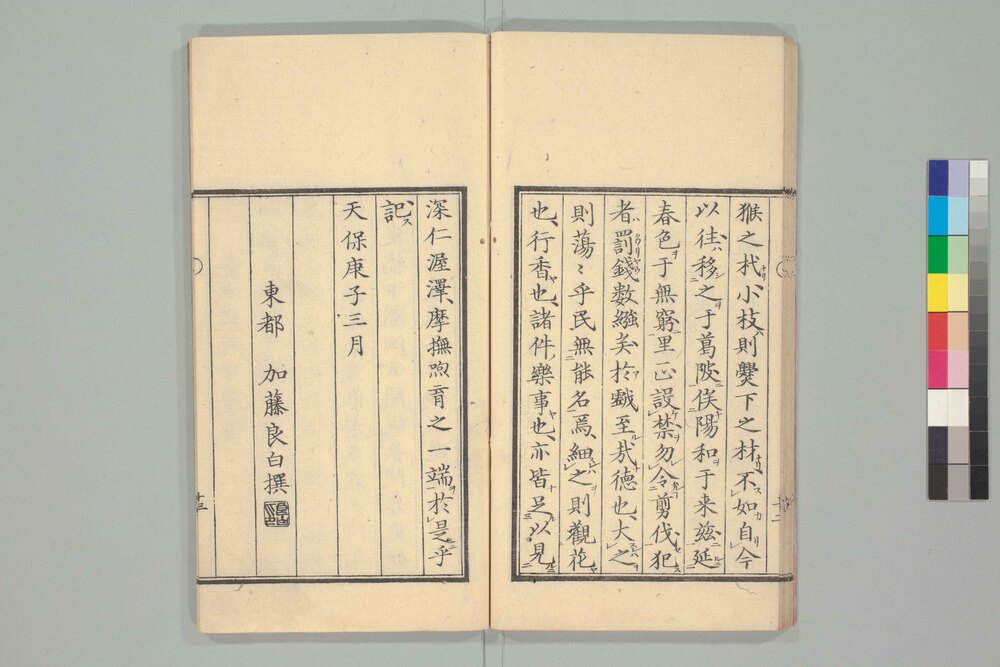 猴之杙小枝則爨下之材不如自今
以往移之于葛陂俟陽和于来茲延
春色于無窮里正設禁勿令剪伐犯
者罰錢数繦矣於戲至哉徳也大之
則蕩〻乎民無能名焉細之則觀花
也行香也諸件樂事也亦皆足以見
深仁渥澤摩撫煦育之一端於是乎
記
天保庚子三月
東都　加藤良白撰